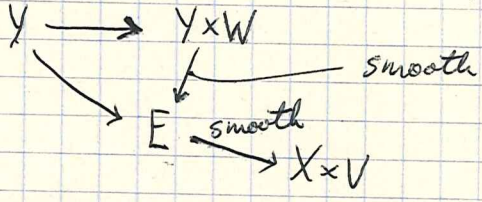 Y → Y×W
smooth
E smooth
X×V